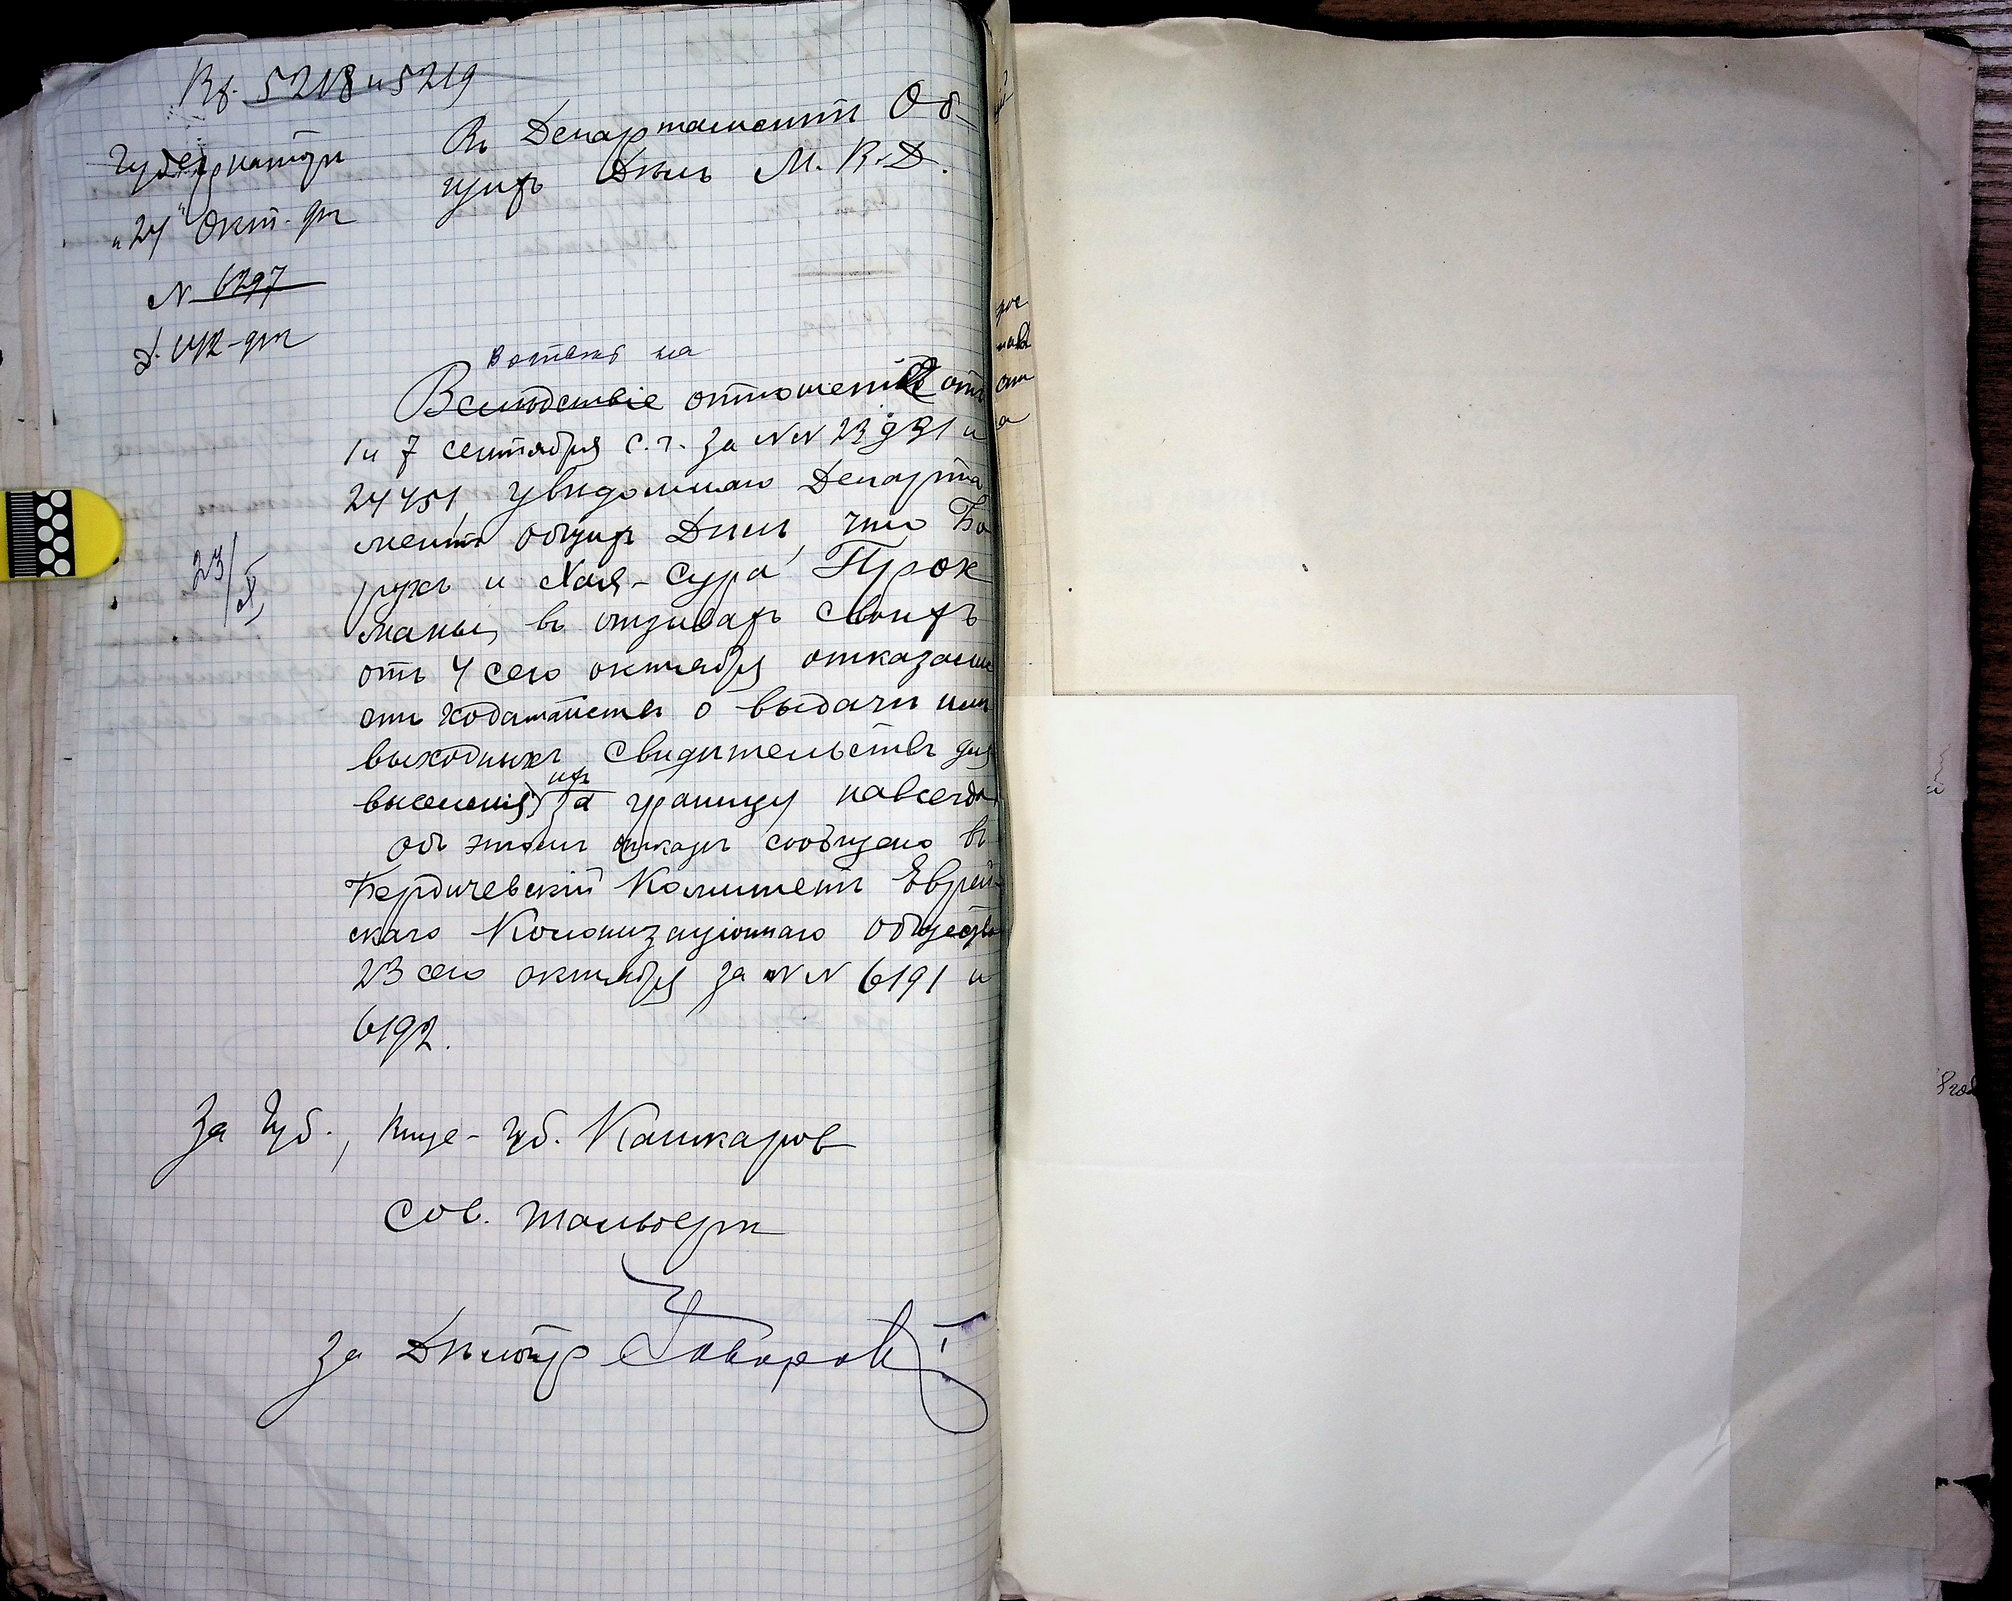 Вх. 5218 и 5219
Губернаторъ
Въ Департаментъ Об-
щихъ Дѣлъ М. В. Д.
"24" Окт. дня
N 6297
В отвѣтъ на
Вслѣдствіе отношенія отъ
1 и 7 сентября с. г. за NN 23931 и
24451, увѣдомляю Департа
ментъ общихъ Дѣлъ, что Бо
рухъ и Хая-Сура Прок
маны, въ отзывахъ своихъ
отъ 4 сего октября отказались
отъ ходатайствъ о выдачи имъ
выходныхъ свидѣтельствъ для
ихъ
выселенія за границу навсегда
23/X
Объ этомъ отказѣ сообщено въ
Бердичевскій Комитетъ Еврей-
скаго Колонизаціоннаго общества
23 сего октября за NN 6191 и
6192.
За Губ., Вице-Губ. Кашкаров
Сов.
За Дѣлопр